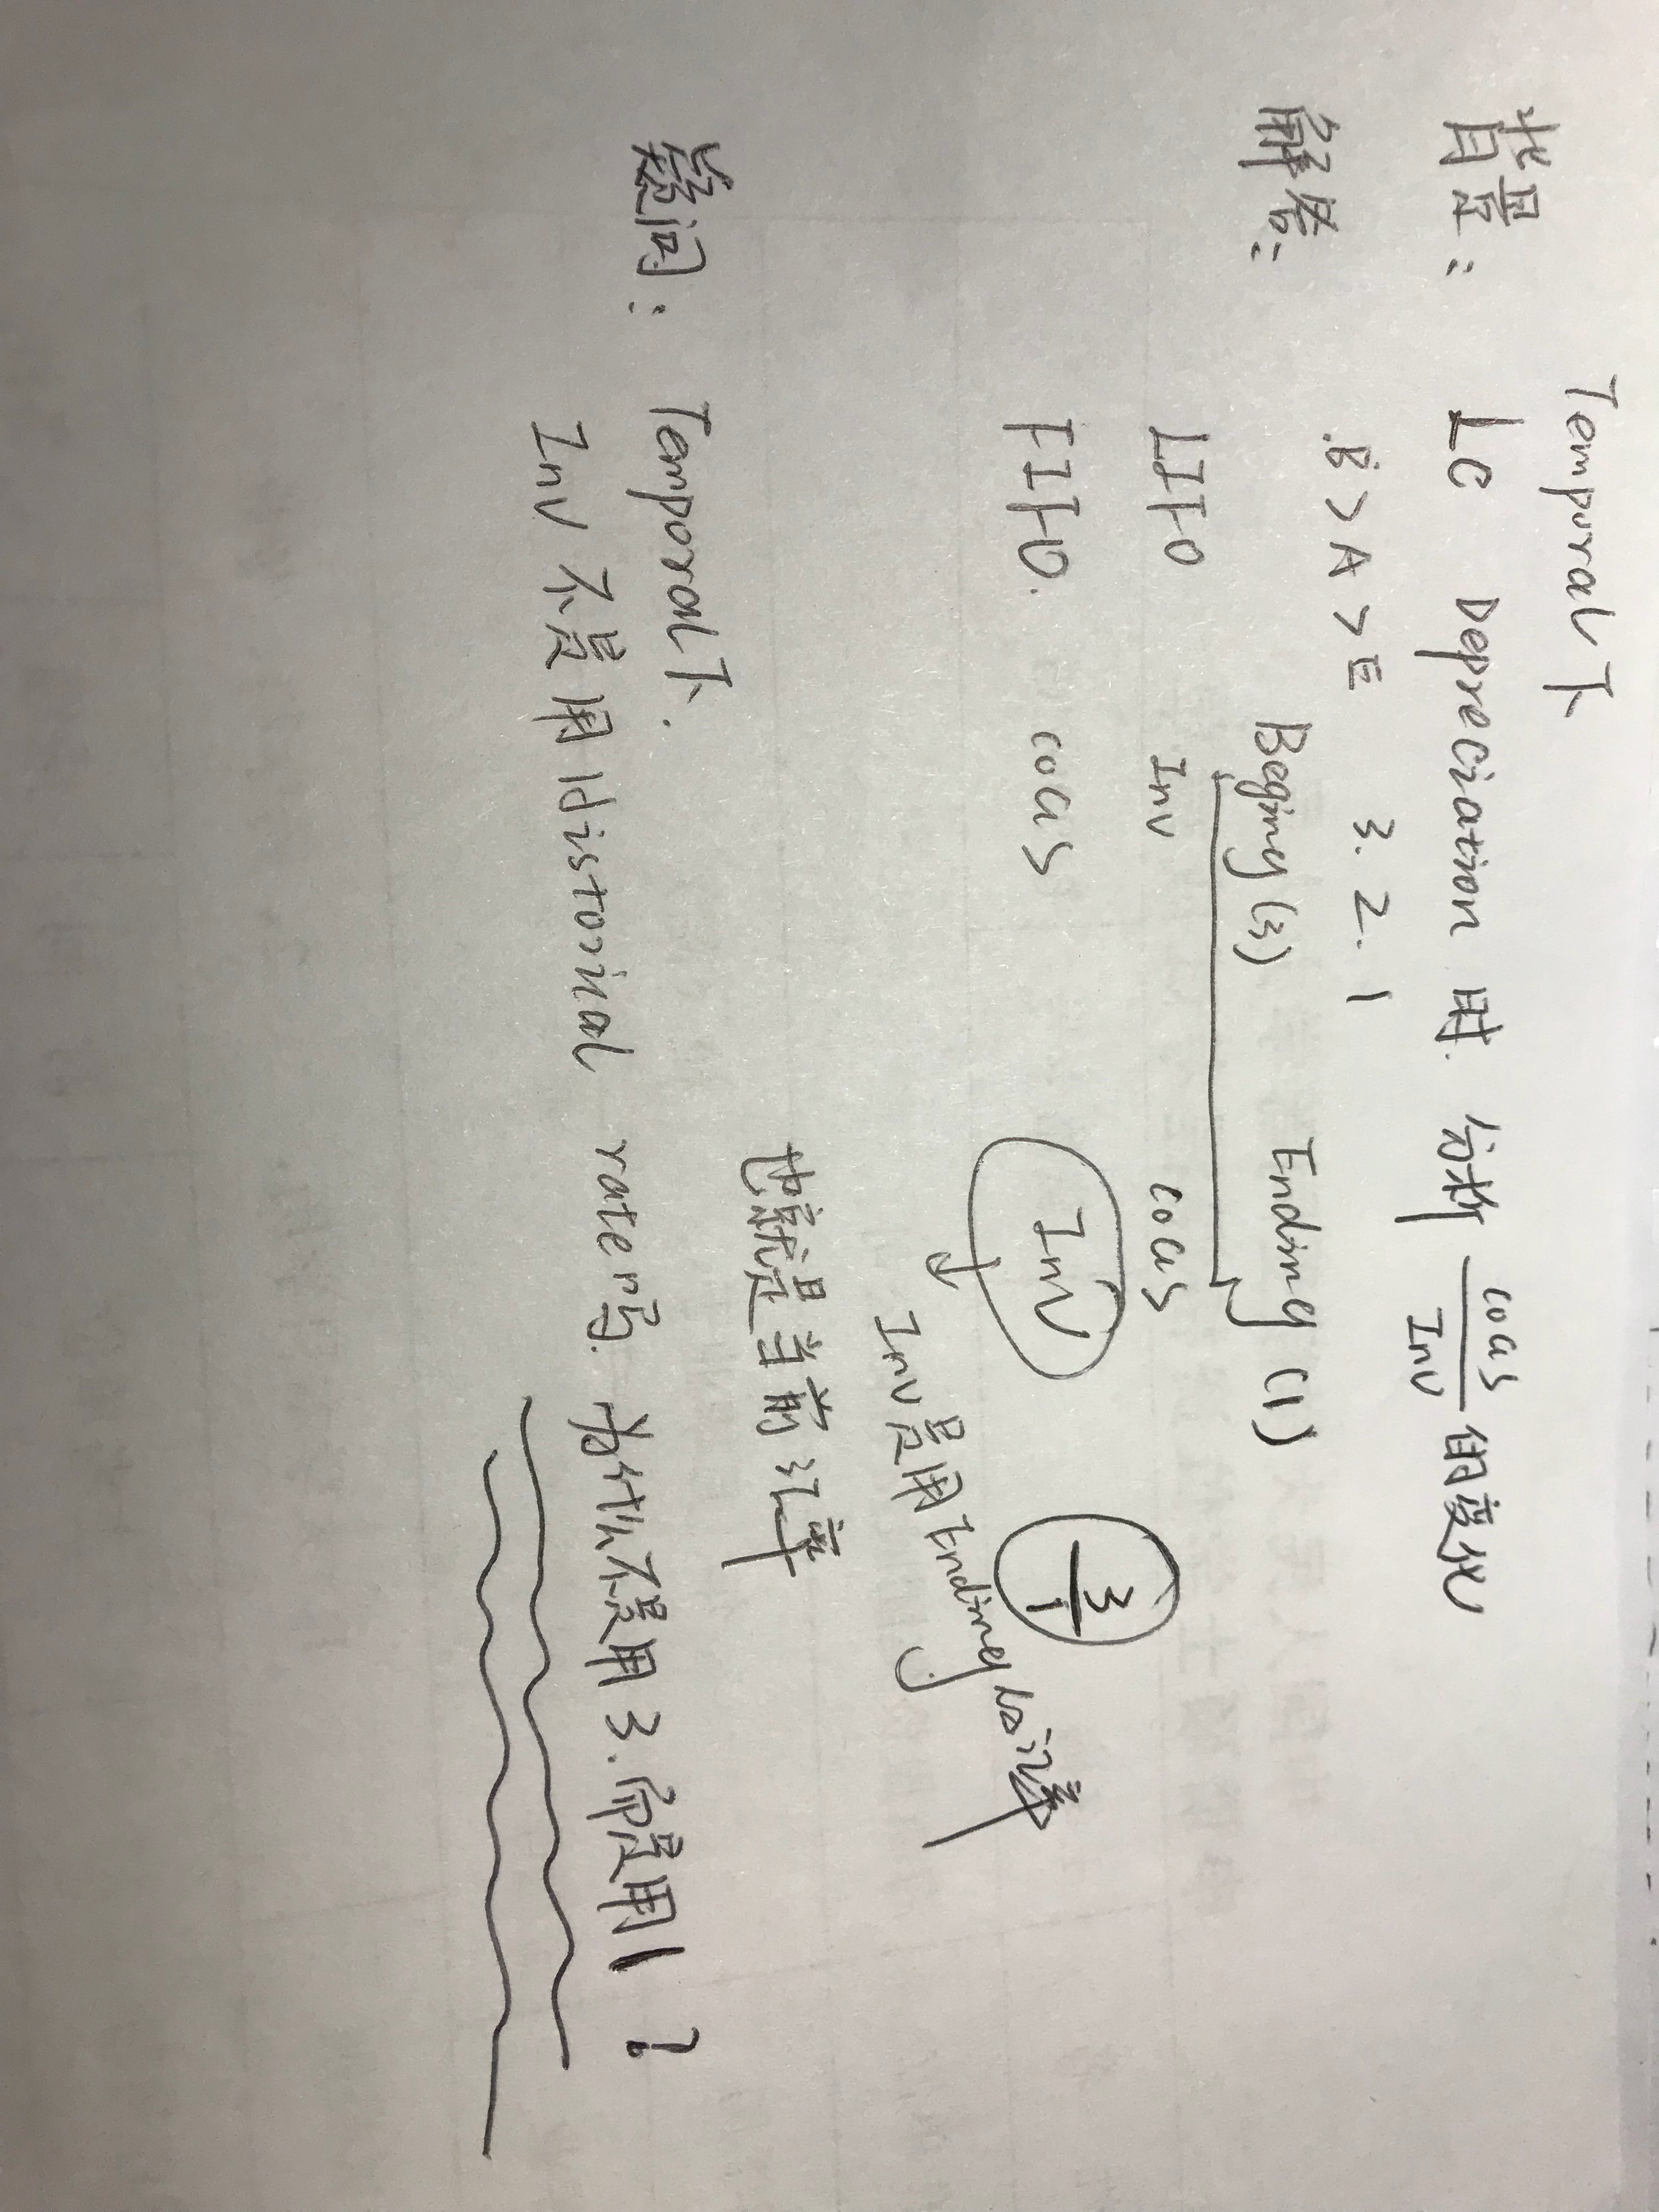 Temporal下
背景: LC Depreciation 时. 分析 COGS/Inv 的变化
解答: B > A > E 3. 2. 1
Beginy (3) Ending (1)
LIFO Inv COGS
FIFO. COGS Inv 3/1
Inv是用Ending的汇率
也就是当前汇率
疑问: Temporal下.
Inv 不是用Historical rate吗. 为什么不是用3.而是用1?